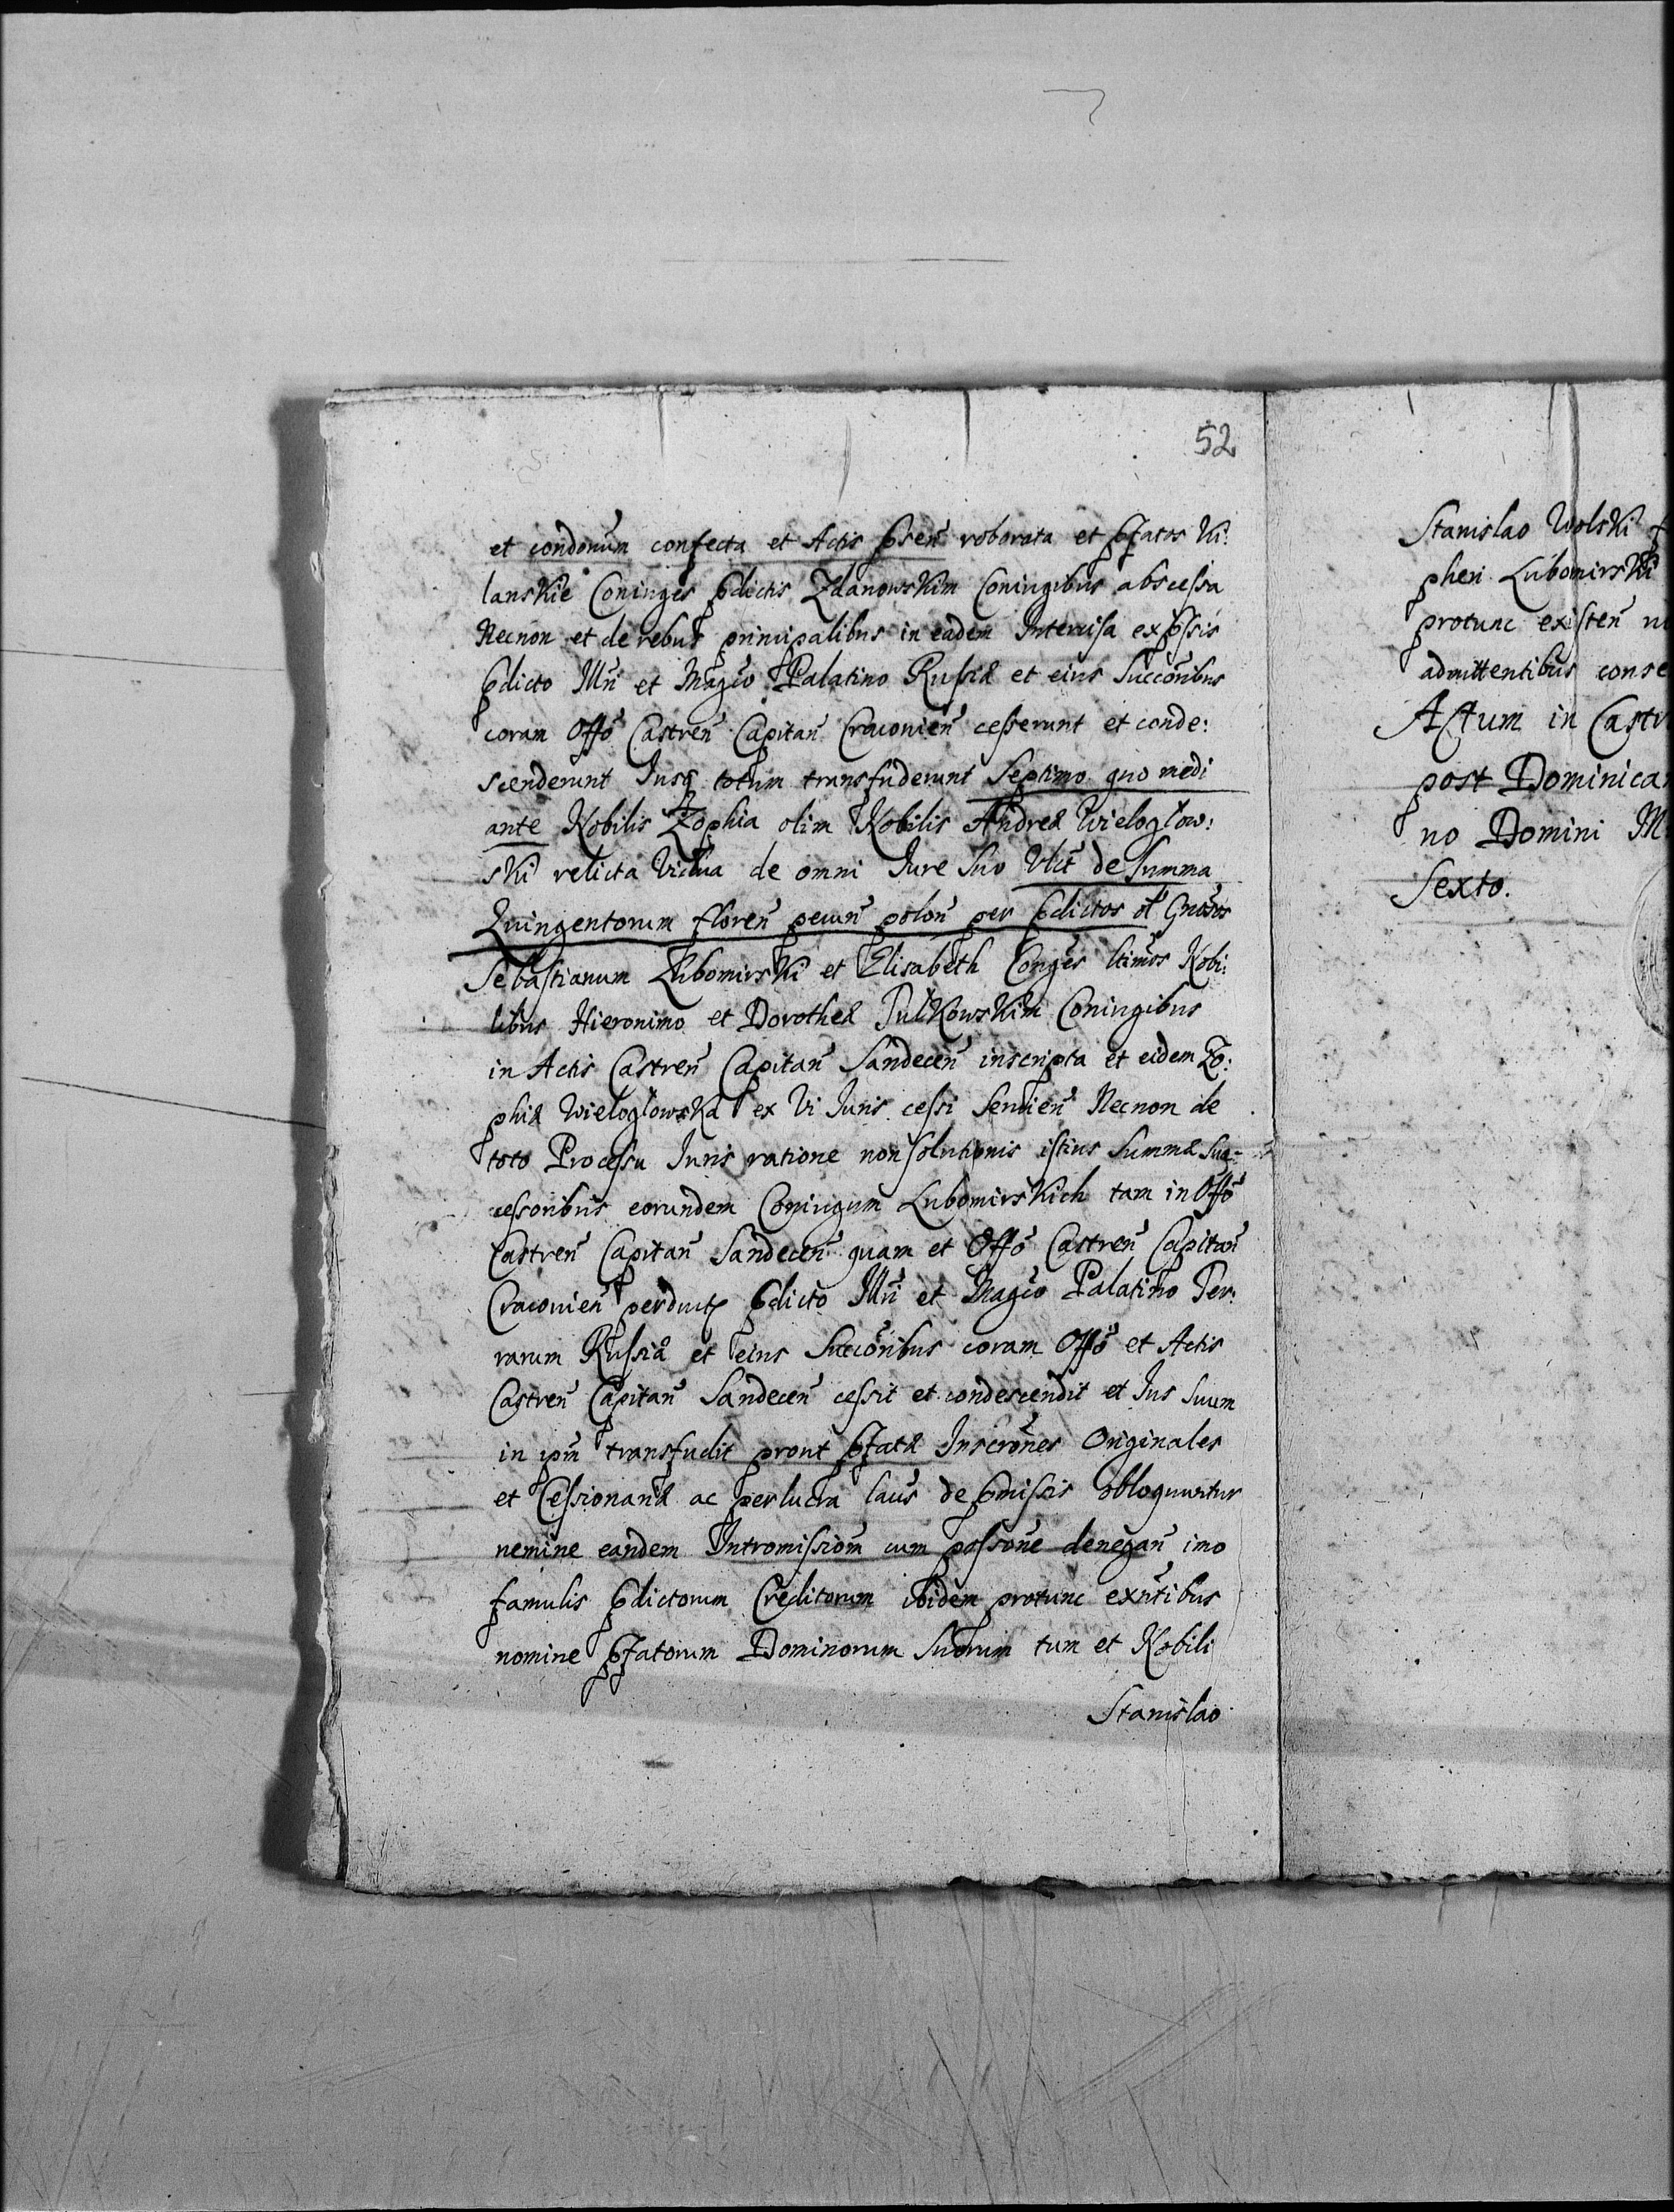 52
et condonum confecta et Actis pñseñ roborata et p̃fatos Ki:
lanskie Coniuges p̃dictis Zdanowskim Coniugibus abscessa
Necnon et de rebus principalibus in eadem Intercisa exp̃ssis
p̃dicto Illri et Magco Palatino Russiæ et eius Succõribus
coram Offõ Castreñ Capitañ Cracovieñ cesserunt et conde:
scenderunt Jusq totum transfuderunt Septimo quo medi
ante Nobilis Zophia olim Nobilis Andreæ Wieloglow:
ski relicta Vidua de omni Jure Suo Vlt de Summa
Quingentorum floreñ pecuñ poloñ per p̃dictos ol Gñosos
Sebastianum Lubomirski et Elisabeth Conges ltimos Nobi:
libus Hieronimo et Dorotheæ Pulkowskim Coniugibus
in Actis Castreñ Capitañ Sandeceñ inscripta et eidem Zo:
phiæ Wieloglowska ex Vi Juris cessi servieñ Necnon de
toto Processu Juris ratione non solutionis istius Summæ Suc-
cessoribus eorundem Coniugum Lubomirskich tam in Offõ
Castreñ Capitañ Sandeceñ quam et Offõ Castreñ Capitañ
Cracovieñ perduct p̃dicto Illri et Magco Palatino Ter:
rarum Russiæ et eius Succõribus coram Offõ et Actis
Castreñ Capitañ Sandeceñ cessit et condescendit et Jus Suum
in ipm transfudit prout p̃fatæ Inscrõnes Originales
et Cessionariæ ac per lucra laus de p̃missis obloquuntur
nemine eandem Intromissiom cum possõne denegañ imo
famulis p̃dictorum Creditorum ibidem protunc exñtibus
nomine p̃fatorum Dominorum Suorum tum et Nobili
Stanislao
Stanislao Wolski
pheri Lubomirski
protunc existeñ
admittentibus conse
Actum in Castr
post Dominica
no Domini M
Sexto.